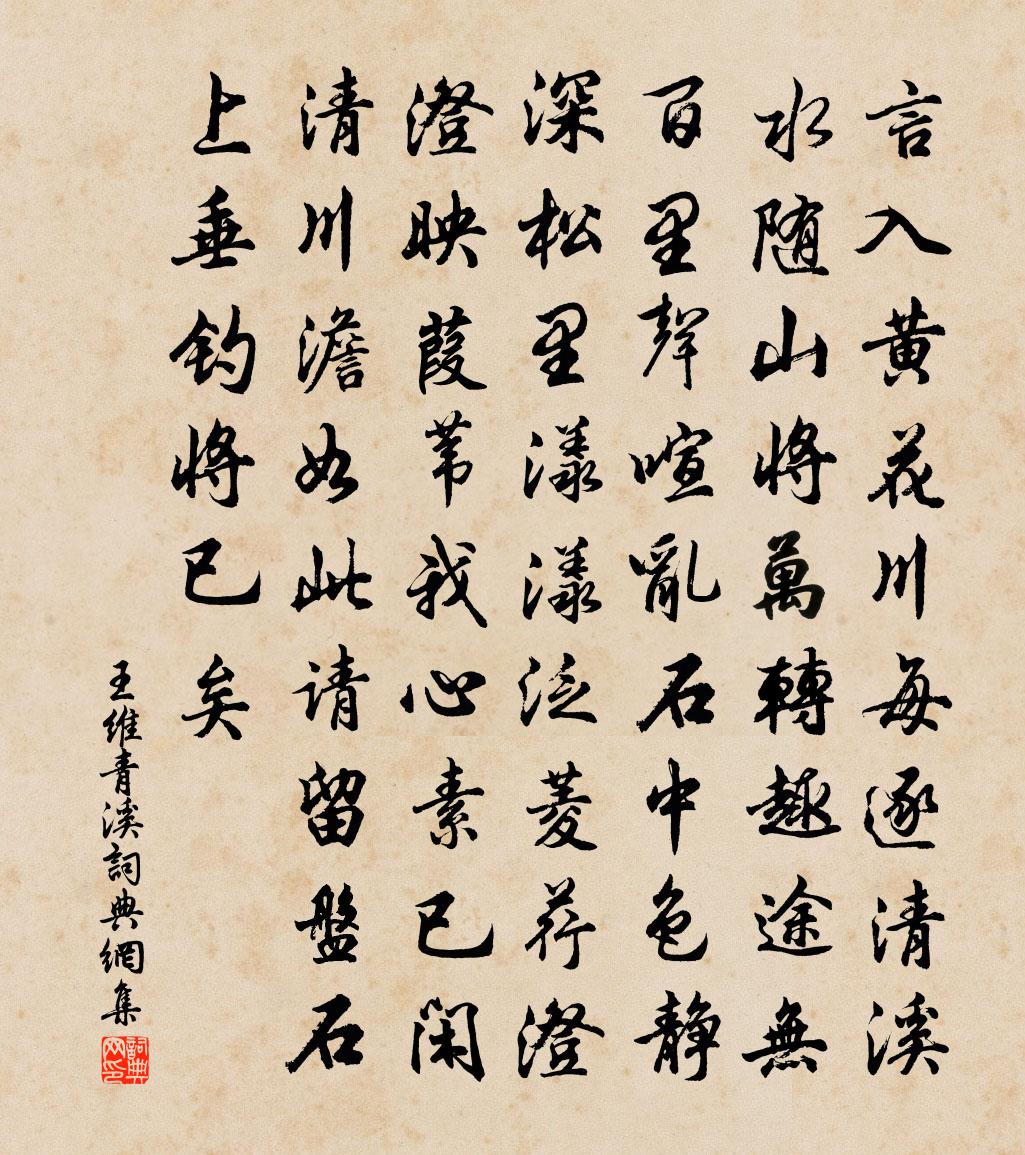 言入黃花川每逐清溪
水隨山將萬轉趣途無
百里聲喧亂石中色靜
深松里漾漾泛菱荇澄
澄映葭葦我心素已閑
清川澹如此請留盤石
上垂釣將已矣
王維青溪詞典網集
詞典网印